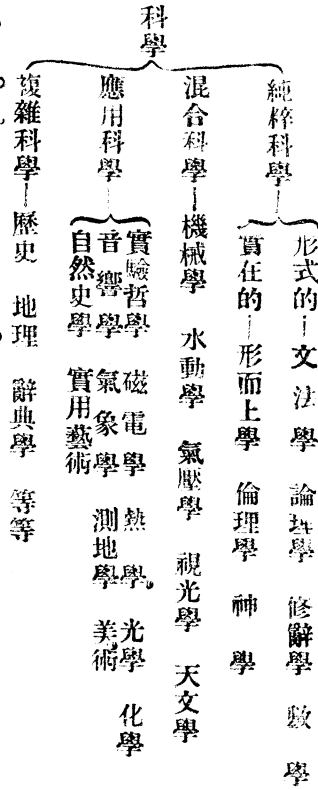 科學
純粹科學
形式的 文法學 論理學 修辭學 數學
實在的 形而上學 倫理學 神學
混合科學 機械學 水動學 氣壓學 視光學 天文學
應用科學
實驗哲學 磁電學 熱學 光學 化學
音響學 氣象學 測地學 美術
自然史學 實用藝術
複雜科學 歷史 地理 辭典學 等等